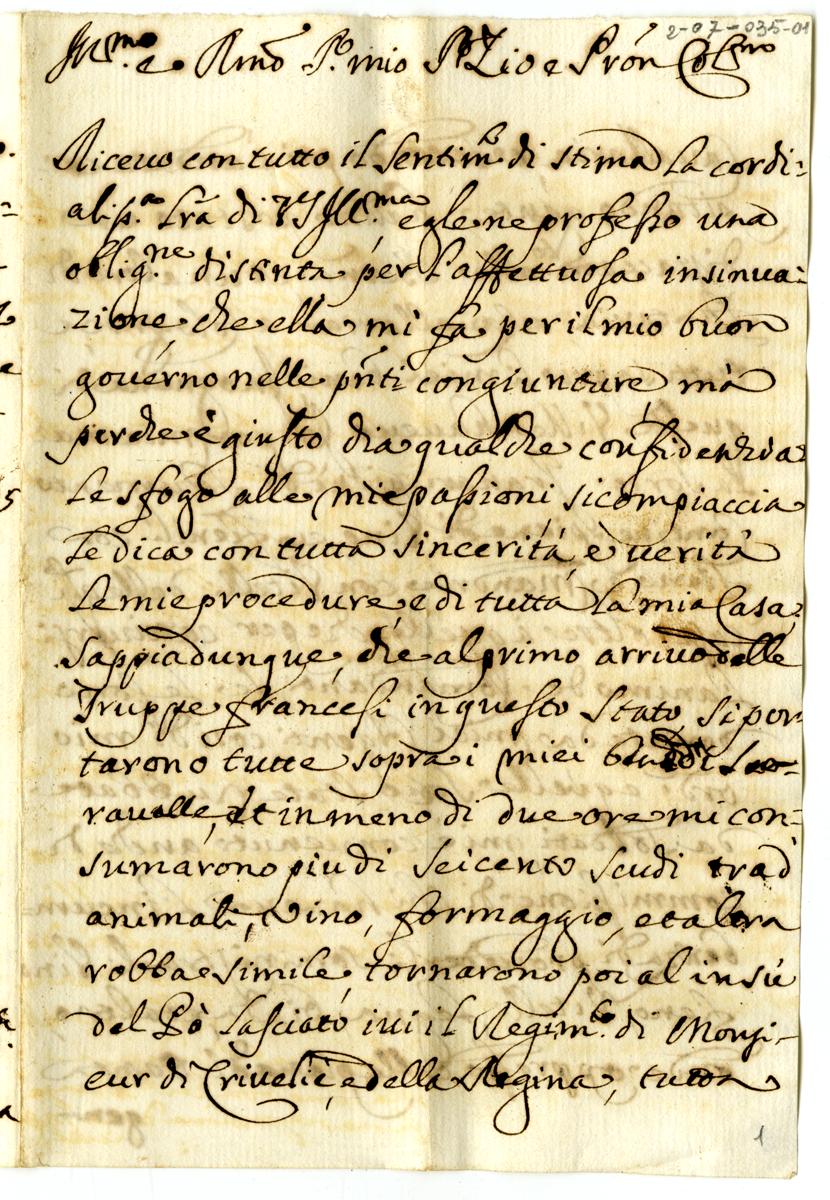 2-07-035-01
Ill.mo e Rmō Sr. mio Sr. Zio e Prōn Col.mo
Riceuo con tutto il sentim.to di stima la cordi=
aliss.a Lrā di VS Ill.ma e gle ne professo una
oblig.ne distinta per l'affettuosa insinua=
zione, che ella mi fà per il mio buon
gouerno nelle pñti congiunture, mà
perche è giusto dia qualche confidenzia=
le sfogo alle mie passioni, si compiaccia
le dica con tutta sincerità, e uerità
le mie procedure, e di tutta la mia Casa,
sappia dunque, che al primo arriuo delle
Truppe francesi in questo Stato si por=
tarono tutte sopra i miei beni di Ser=
raualle, et in meno di due ore mi con=
sumarono piu di seicento scudi trà
animali, uino, formaggio, et altra
robba simile, tornarono poi al in sù
del Pò lasciato iui il Regim.to di Monsi=
eur di Criuelié, e della Regina, tutta
1